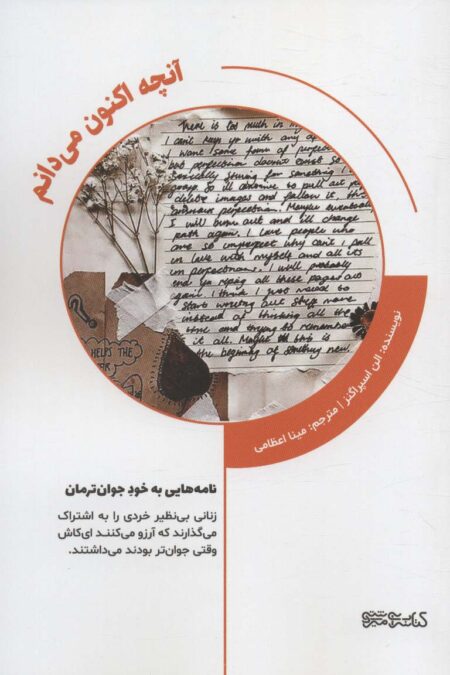 آنچه اکنون می‌دانم
There is too much in my
I can't keep up with any of
I want some form of perfect
but perfection doesn't exist so
striving for something
images and follow it, the
perfection. Maybe eventually
I will burn out and ill change
path again. I love people who
are so imperfect why can't I fall
in love with myself and all its
imperfections. I will probably
end up these pages all
again. I think I just need to
start writing out stuff more
instead of thinking all the
time and trying to remember
it all. Maybe this is
the beginning of something new.
HELPS THE
نویسنده: الن اسپراگنز | مترجم: مینا اعظامی
نامه‌هایی به خودِ جوان‌ترمان
زنانی بی‌نظیر خردی را به اشتراک
می‌گذارند که آرزو می‌کنند ای‌کاش
وقتی جوان‌تر بودند می‌داشتند.
کتابسرای میردشتی